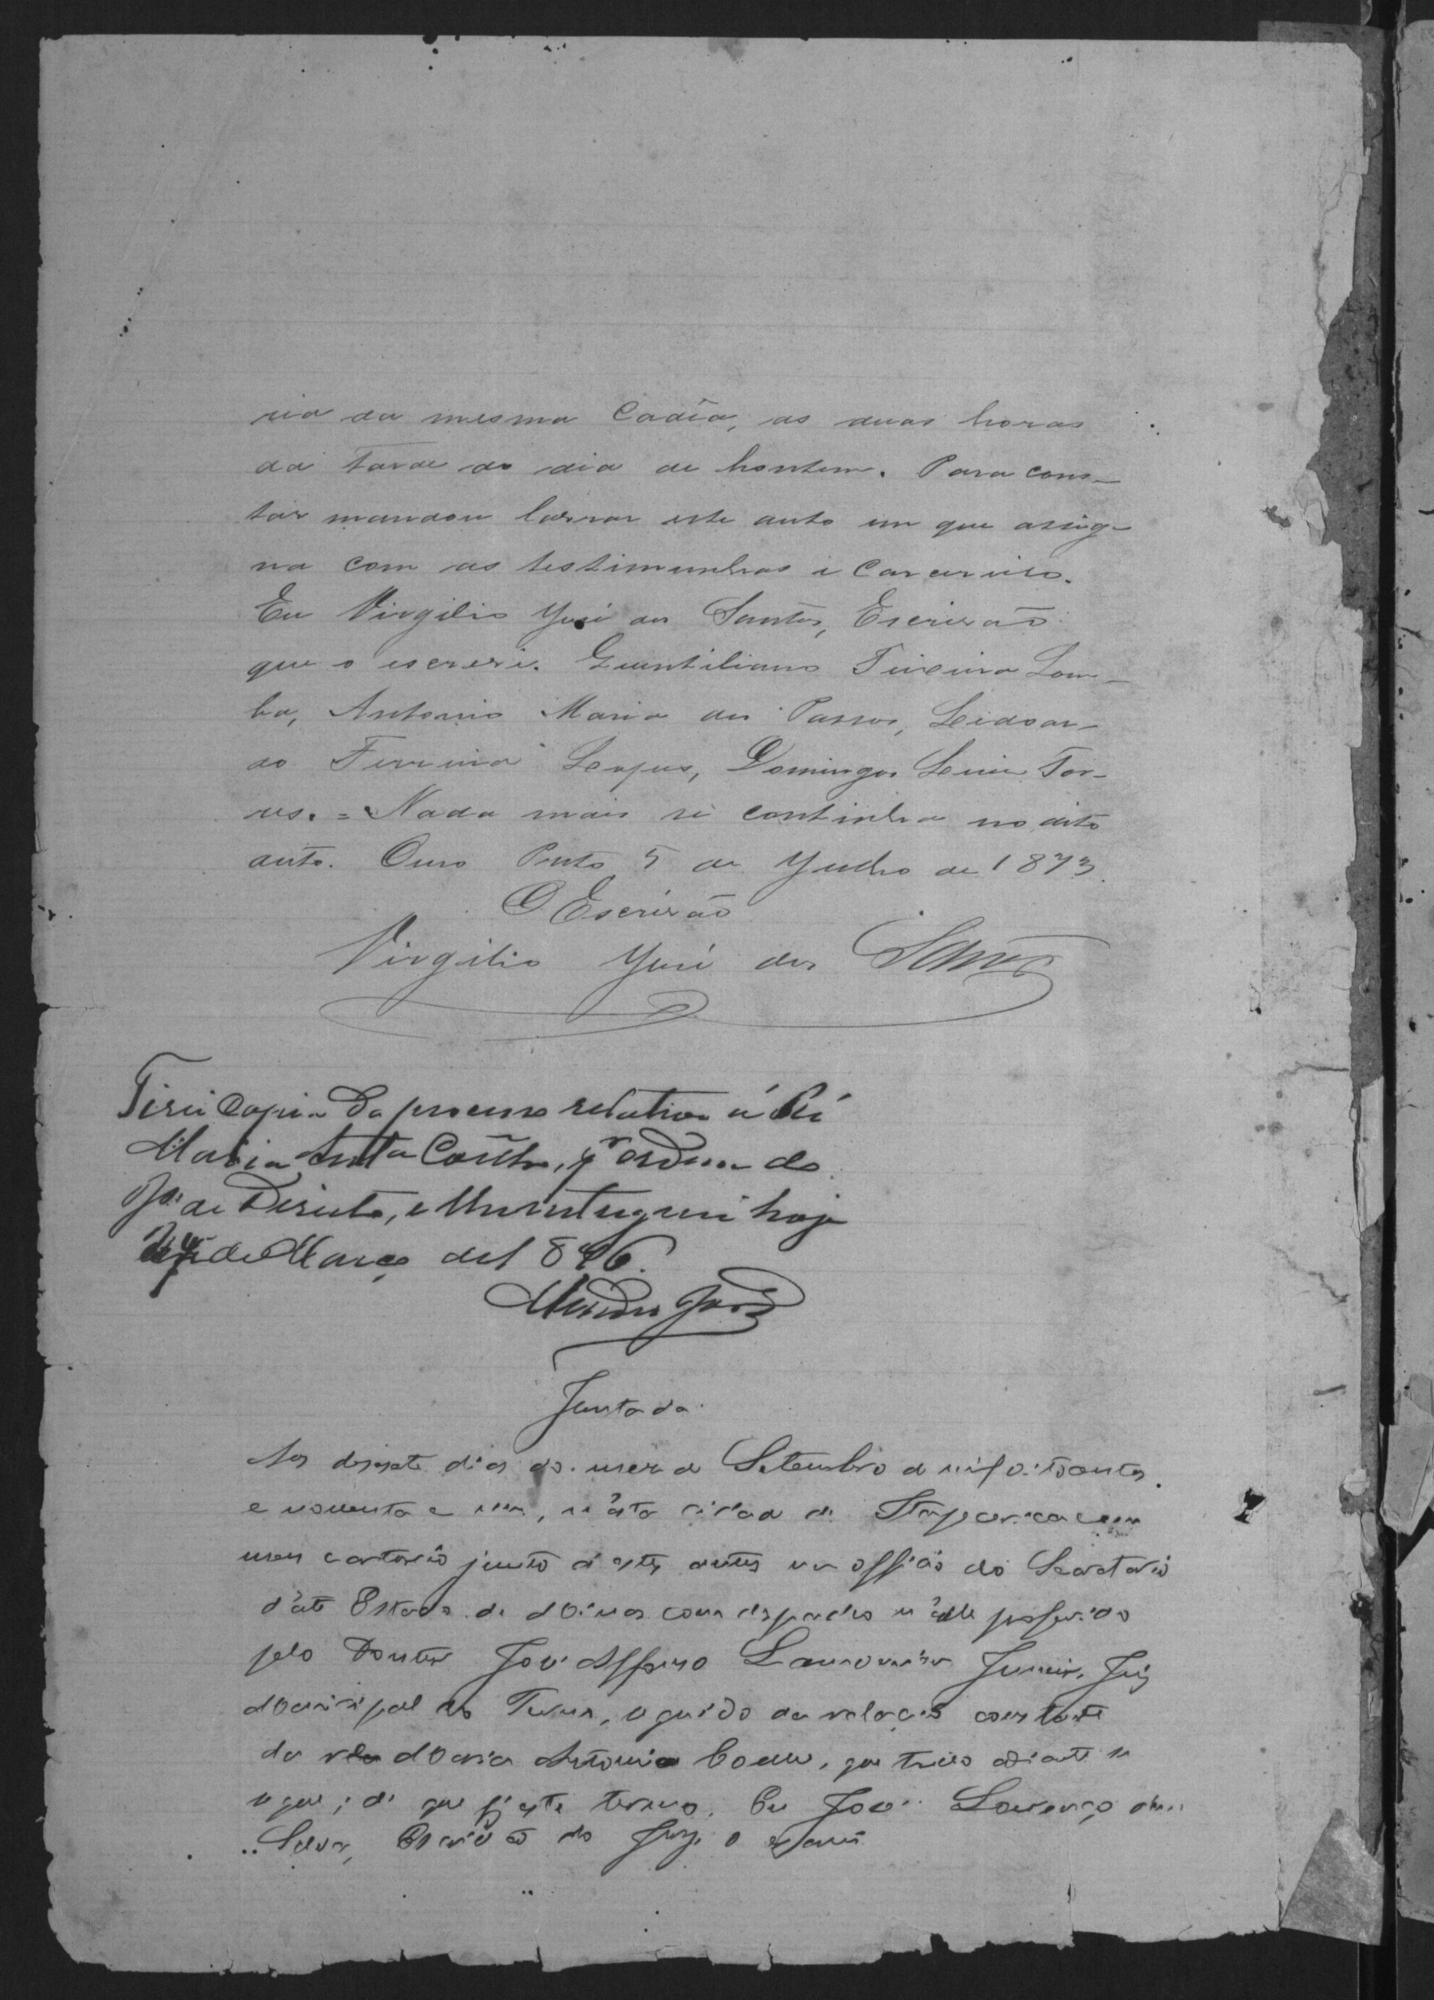 ria da mesma Cadêa, as duas horas
da tarde do dia de hontem. Para cons-
tar mandou lavrar este auto em que assig-
na com as testimunhas e Carcereiro.
Eu Virgilio José dos Santos, Escrivão
que o escrevi. Quintiliano Teixeira Lom-
ba, Antonio Maria dos Passos, Leidoar-
do Ferreira Lopes, Domingos Leira Tor-
res. = Nada mais se continha no dito
auto. Ouro Preto 5 de Julho de 1873.
O Escrivão
Virgilio José dos Santos
Tirei Copia do processo relativo á Ré
Maria Anta Coelho, pr ordem do
de Direito, e hoje
de Março de 1896.
Juntada
Aos desesete dias do mez de Setembro de mil oitocentos
e noventa e um, n'esta cidade de Itapecerica em
meu cartorio junto á estes autos um officio do Secretario
d'este Estado de Minas com despacho n'elle proferido
pelo Doutor José Affonso Junior, Juiz
Municipal do Termo, da relação constante
da ré Maria Antonia Coelho, que tudo adiante se
segue; de que fiz este termo. Eu José Lourenço da
Silva, Escrivão do Jury o escrevi